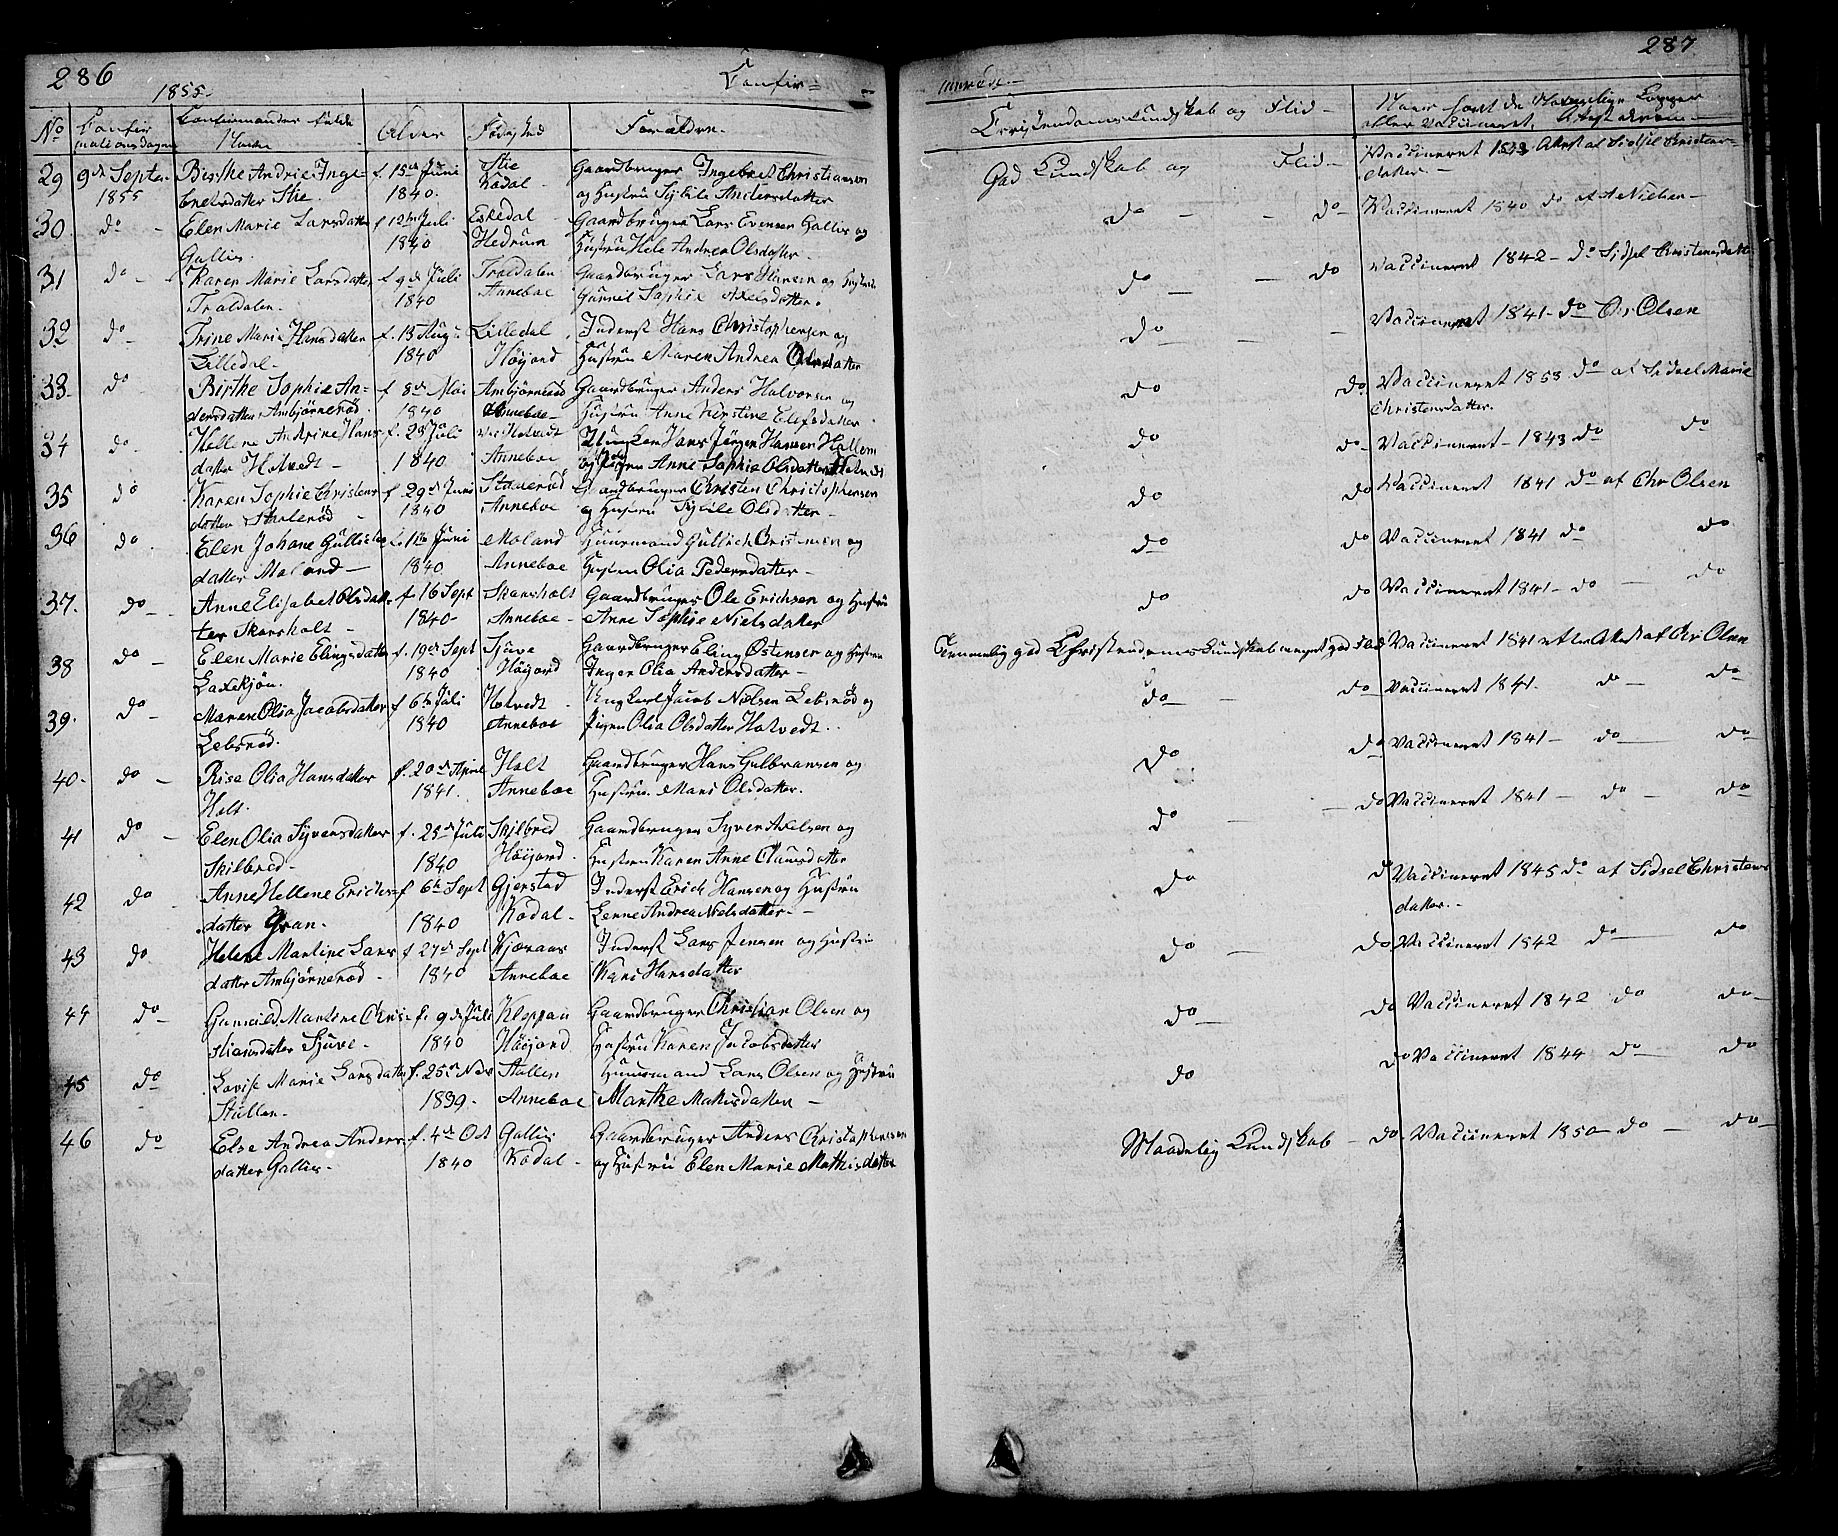 286
1855.
Confir=
No Confirmationsdagen Confirmandens fulde Navn Alder Födested Forældre.
29 9de Septr 1855 Birthe Andrie Inge- f. 15de Juni Stie Gaardbruger Ingebret Christiansen
bretsdatter Stie. 1840. Kodal og Hustru Sybile Andersdatter
30. do Elen Marie Larsdatter f 12te Juli Eskedal Gaardbruger Lars Evensen Gallis og
Gallis. 1840 Hedrum Hustru Hele Andrea Olsdatter.
31 do Karen Marie Larsdatter f 9de Juli Traldalen Gaardbruger Lars Hansen og Hustru
Traldalen. 1840 Anneboe Gunnil Sophie Axelsdatter.
32 do Trine Marie Hansdatter f. 13 Aug. Lilledal Inderst Hans Christophersen og
Lilledal. 1840 Höyjord Hustru Maren Andrea Olsdatter
33 do Birthe Sophie An= f 8de Mai Ambjörnerød Gaardbruger Anders Halvorsen og
dersdatter Ambjörnerød. 1840 Anneboe Hustru Anne Kirstine Elefsdatter
34 do. Hellene Andrine Hans f. 23 Juli Holvedt Ungkarl Hans Jörgen Hansen
datter Holvedt 1840 Anneboe og Pigen Anne Sophie Olsdatter Holvedt
35 do Karen Sophie Christens f 29de Juni Stalerød Gaardbruger Christen Christophersen
datter Stalerød 1840 Anneboe og Hustru Sybile Olsdatter
36 do. Elen Johane Gullichs f. 11te Juni Moland Huusmand Gullich Cristensen og
datter Moland 1840 Anneboe Hustru Olia Pedersdatter
37. do Anne Elisabet Olsdat- f 16 Sept Skarsholt Gaardbruger Ole Erichsen og Hustru
ter Skarsholt 1840 Anneboe Anne Sophie Nielsdatter
38 do Elen Marie Elingsdatter f. 19de Sept Sjuve Gaardbruger Eling Östensen og Hustru
Laxekjön. 1840 Höyjord Inger Olia Andersdatter
39. do Maren Olia Jacobsdatter f 6te Juli Holvedt Ungkarl Jacob Nielsen Lebsrød og
Lebsrød. 1840 Anneboe Pigen Olia Olsdatter Holvedt.
40. do Risa Olia Hansdatter f. 20de April Holt Gaardbruger Hans Gulbransen og
Holt. 1841. Anneboe Hustru Mari Olsdatter.
41 do Elen Olia Syversdatter f. 23de Juli Skilbred Gaardbruger Syver Axelsen og
Skilbred 1840 Höijord Hustru Karen Anne Clausdatter
42 do Anne Hellene Erichs- f 6te Sept Gjerstad Inderst Erich Hansen og Hustru
datter Gran. 1840 Kodal Lenne Andrea Nielsdatter
43 do Helene Martine Lars f 27de Sept Kjæraas Inderst Lars Jensen og Hustru
datter Ambjörnerød 1840 Anneboe Kari Hansdatter
44 do Gunnild Martene Chri- f. 9de Juli Kleppan Gaardbruger Christian Olsen og
stiansdatter Sjuve 1840 Höijord Hustru Karen Jacobsdatter
45 do Lovise Marie Larsdatter f. 25de Nov Stullen Huusmand Lars Olsen og Hustru
Stullen 1839 Anneboe Marthe Mathisdatter
46 do Else Andrea Anders f 4de Oct Gallis Gaardbruger Anders Christophersen
datter Gallis. 1840 Kodal og Hustru Elen Marie Mathisdatter
287
merede.
Christendomskundskab og Flid Naar havt de Naturlige Kopper
eller Vaccineret. Attest derom
God Kundskab og Flid Vaccineret 1843 Attest af Sidsel Christens-
datter.
do do Vaccineret 1840 do af A Nielsen
do do Vaccineret 1842 do Sidsel Christensdatter
do Vaccineret 1841 do Chr Olsen
do do Vaccineret 1853 do af Sidsel Marie
Christensdatter.
do do Vaccineret 1843 do do
do do Vaccineret 1841 do af Chr Olsen
do do Vaccineret 1841 do do
do do Vaccineret 1841 do do
Temmelig god Christendomskundskab meget god Flid Vaccineret 1841 efter Attest af Chr Olsen
do do Vaccineret 1841. do do
do do Vaccineret 1841 do do
do do Vaccineret 1841 do do
do do Vaccineret 1845 do af Sidsel Christens
datter.
do do Vaccineret 1842 do do
do do Vaccineret 1842 do do
do do Vaccineret 1844 do do
Maadelig Kundskab do Vaccineret 1850 do do